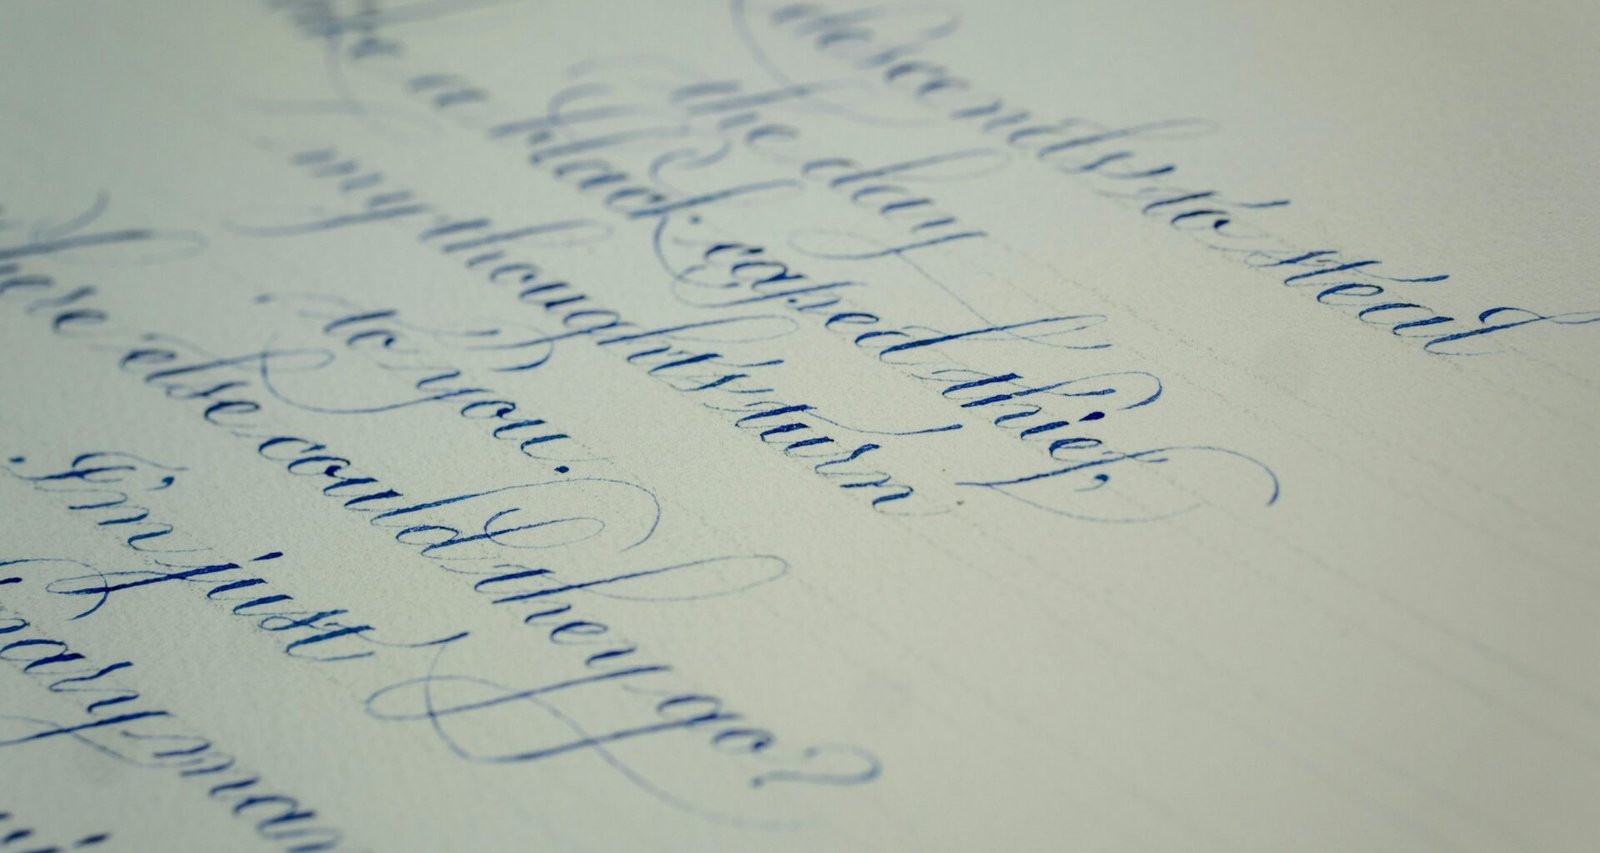 descends to steal
the day
like a black caped thief,
my thoughts turn
to you.
where else could they go?
I'm just
man